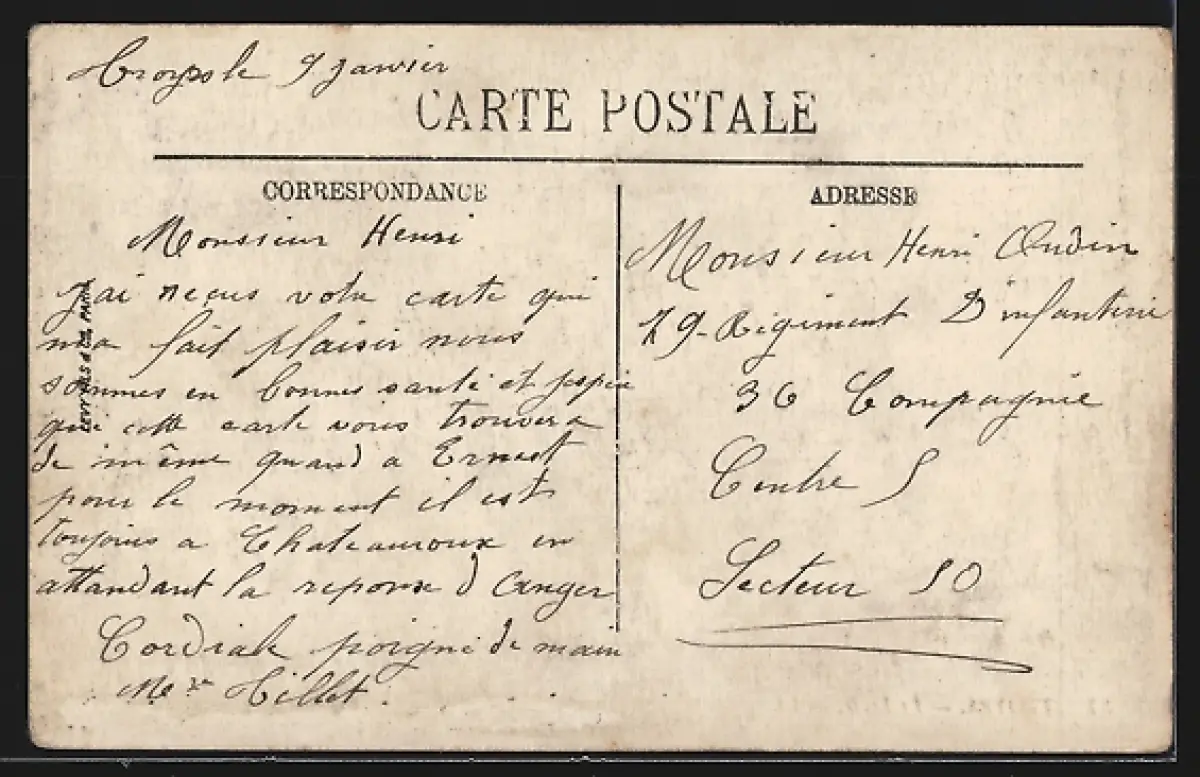 Troyes le 9 janvier
CARTE POSTALE
CORRESPONDANCE
Monsieur Henri
J'ai reçus votre carte qui
m'a fait plaisir nous
sommes en bonnes santé et j'espère
que cette carte vous trouvera
de même quand a Ernest
pour le moment il est
toujours a Chateauroux en
attandant la reponse d Anger
Cordiale poigné de main
Mr Hillet.
LEVY FILS & Cie, PARIS
ADRESSE
Monsieur Henri Oudin
79- Régiment D'infanterie
36 Compagnie
Centre 5
Secteur 50